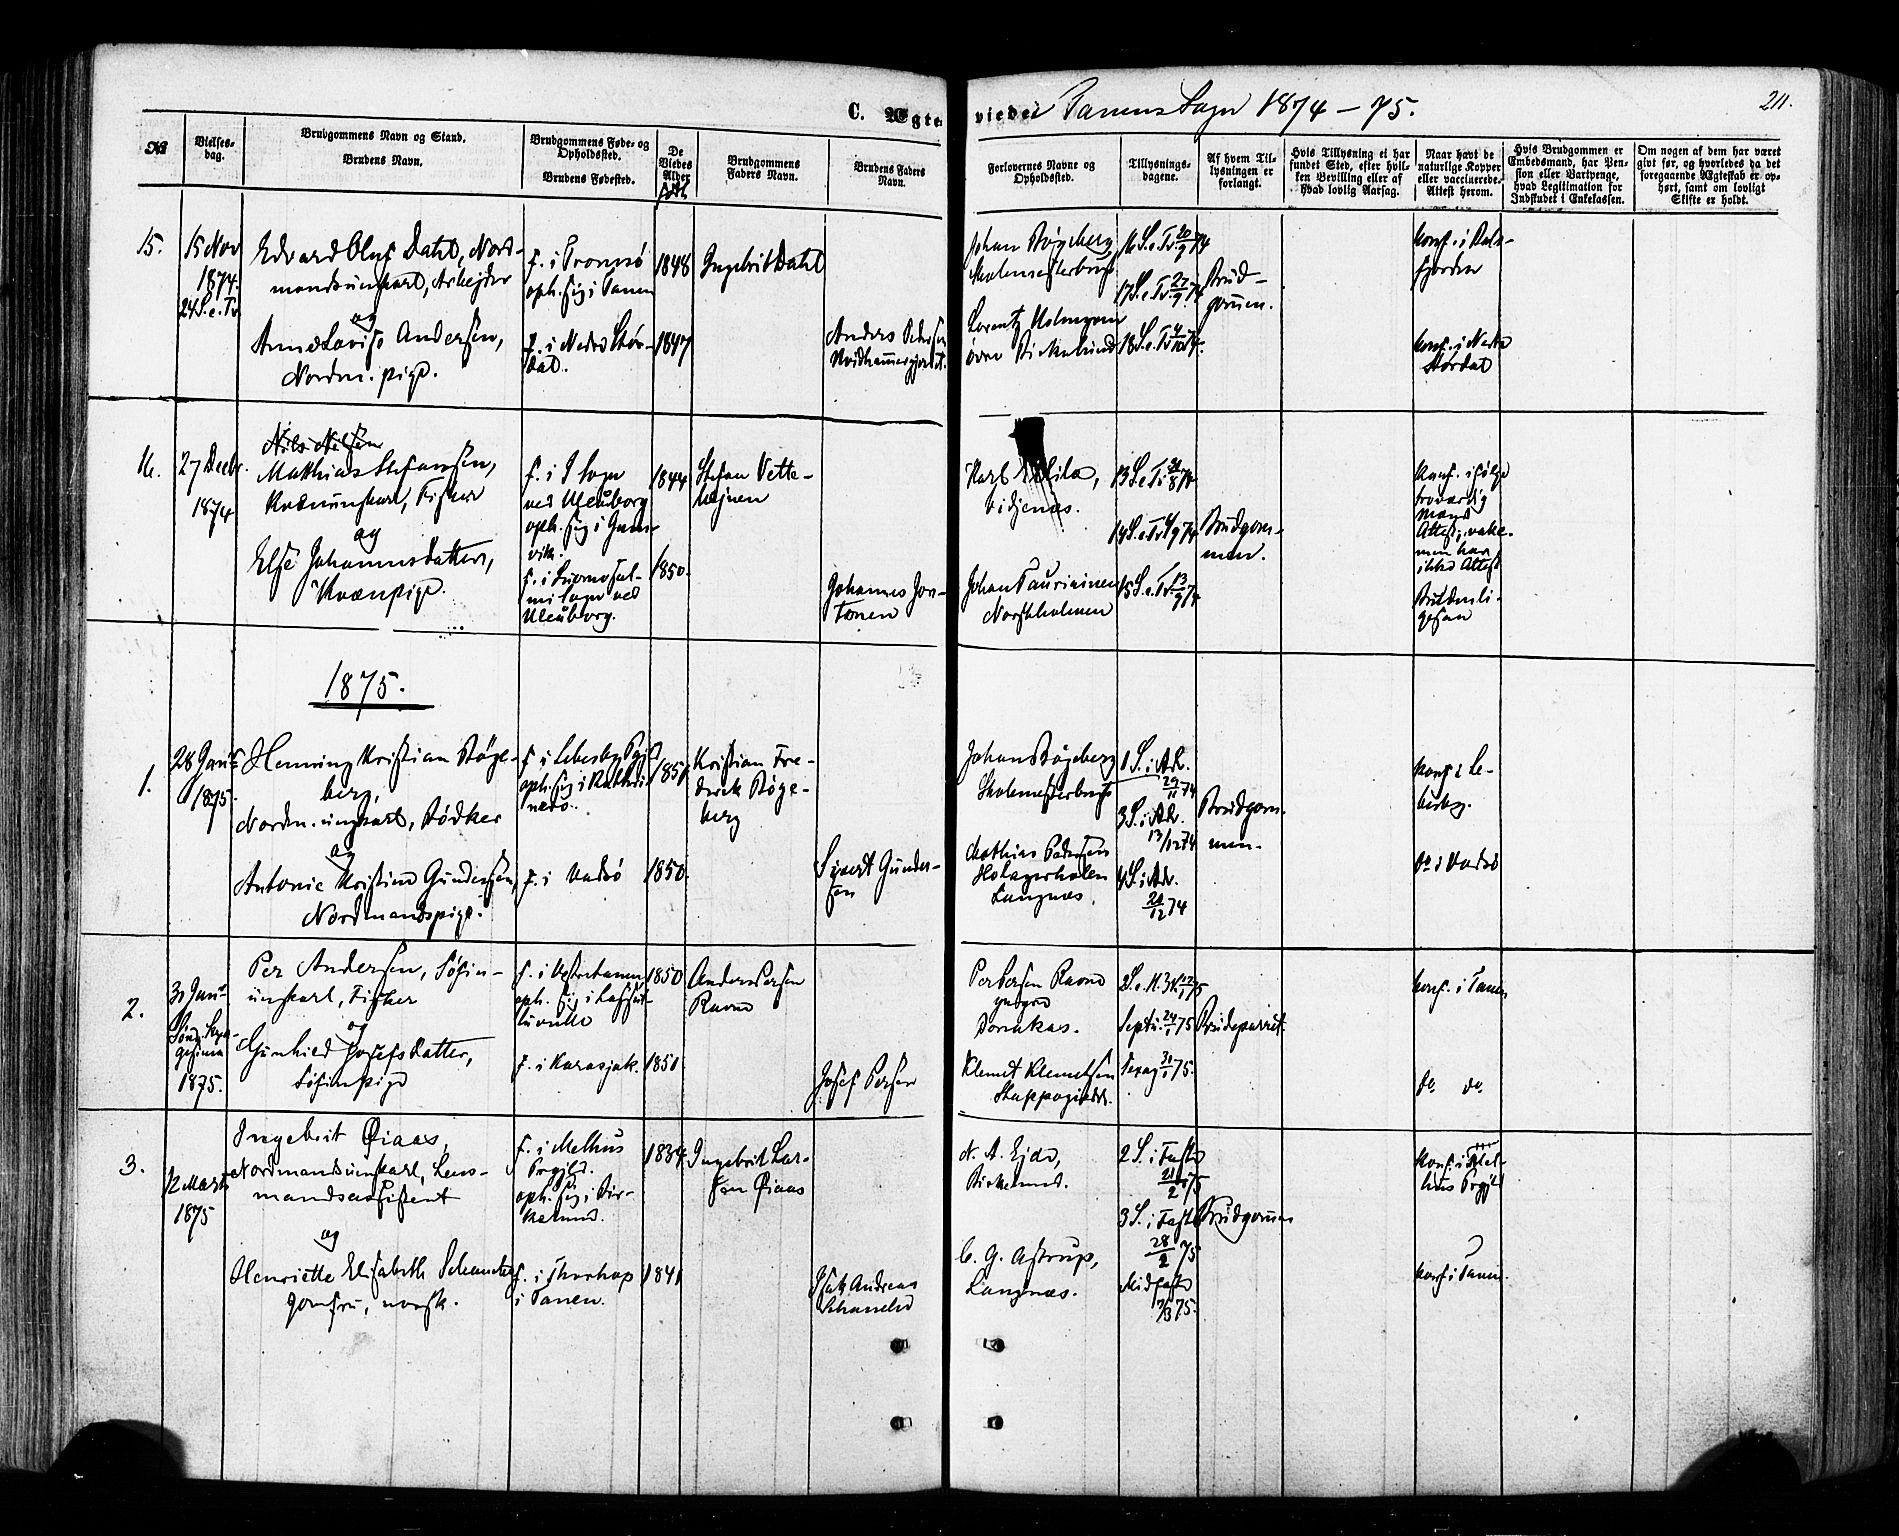 C. Ægteviede i Tanens Sogn 1874-75.
211.
No
Vielses-
dag.
Brudgommens Navn og Stand.
Brudens Navn.
Brudgommens Føde- og
Opholdssted.
Brudens Fødested.
De
Viedes
Alder
Brudgommens
Faders Navn.
Brudens Faders
Navn.
Forlovernes Navne og
Opholdssted.
Tillysnings-
dagene.
Af hvem Til-
lysningen er
forlangt.
Hvis Tillysning ei har
fundet Sted, efter hvil-
ken Bevilling eller af
hvad lovlig Aarsag.
Naar havt de
naturlige Kopper
eller vaccinerede.
Attest herom.
Hvis Brudgommen er
Embedsmand, har Pen-
sion eller Vartpenge,
hvad Legitimation for
Indskudet i Enkekassen.
Om nogen af dem har været
givt før, og hvorledes da det
foregaaende Ægteskab er op-
hørt, samt om lovligt
Skifte er holdt.
15.
15 Nov
1874.
24 S. e. Tr.
Edvard Oluf Dahl, Nord-
mandsungkarl, Arbejder
og
Anne Lovise Andersen,
Nordm. pige.
f. i Tromsø
oph. sig i Tanen
f. i Nedre Stør-
dal.
1848
1847
Ingebrit Dahl
Anders Peders
Johan Bøgeberg
Skolemesterbugt
Lorentz Holmgren
øvre Birkelund
16 S. e. Tr. 20/9 74
17 S. e. Tr. 27/9 74
18 S. e. Tr. 4/10 74.
Brud-
gommen.
konf. i Nedre
Størdal
16.
27 Decbr.
1874
Nils Nilsen
Mathias Stefansen,
Kvænungkarl, Fisker
og
Else Johannesdatter,
Kvænpige.
f. i Sogn
ved Uleåborg
oph. sig i Gam-
vik.
f. i Suomosal-
mi Sogn ved
Uleåborg.
1844
1850.
Stefan Vette-
läjnen
Johannes Jon-
tonen
Karl
Vidjenæs.
Johan Tauriainen
Norskholmen
13 S. e. Tr. 30/8 74
14 S. e. Tr. 6/9 74
15 S. e. Tr. 13/9 74
Brudgom-
men.
konf. ifølge
troværdig
Mands
Attest, vakc.
men har
ikke Attest
Bruden li-
gesaa
1875.
1.
28 Janr
1875.
Henning Kristian Bøge-
berg,
Nordm. ungkarl, Bødker
og
Antonie Kristine Gundersen,
Nordmandspige.
f. i Lebesby Pgjd
oph. sig i
f. i Vadsø
1851
1850.
Kristian Fre-
derik Bøge-
berg
Sivert Gunder-
sen
Johan Bøgeberg
Skolemesterbugt
Mathias Pedersen
Holmen
Langnæs.
1 S. i Adv.
29/11 74
3 S. i Adv.
13/12 74
4 S. i Adv.
20/12 74
Brudgom-
men.
konf. i Le-
besby.
do i Vadsø
2.
31 Janr
Sønd. Sexa-
gesima
1875.
Per Andersen, Søfin-
ungkarl, Fisker
og
Gunhild Josefsdatter,
Søfinpige
f. i Vestertanen
f. i Karasjok.
1850
1851
Anders Persen
Ravna
Josef Persen
Per Persen Ravna
yngre
Klemet Klemetsen
2 S. e. H. 3 K. 17/1 75
Septu. 24/1 75
Sexag 31/1 75.
Brudeparret.
konf. i Tanen
do do
3.
12 Marts
1875
Ingebrit Øiaas,
Nordmandsungkarl, Lens-
mandsassistent
og
Henriette Elisabeth Schanche,
Jomfru, norsk.
f. i Melhus
Prgjld.
oph. sig i Bir-
kelund.
f. i Thorhop
i Tanen.
1834
1841
Ingebrit Lar-
sen Øiaas
Isak Andreas
Schanche
N. A. Eide,
Birkelund.
C. G. Astrup,
Langnæs.
2 S. i Faste
21/2 75
3 S. i Faste
28/2 75
Midfaste
7/3 75.
Brudgommen
konf. i Mel-
hus Prgjld
konf. i Tanen.